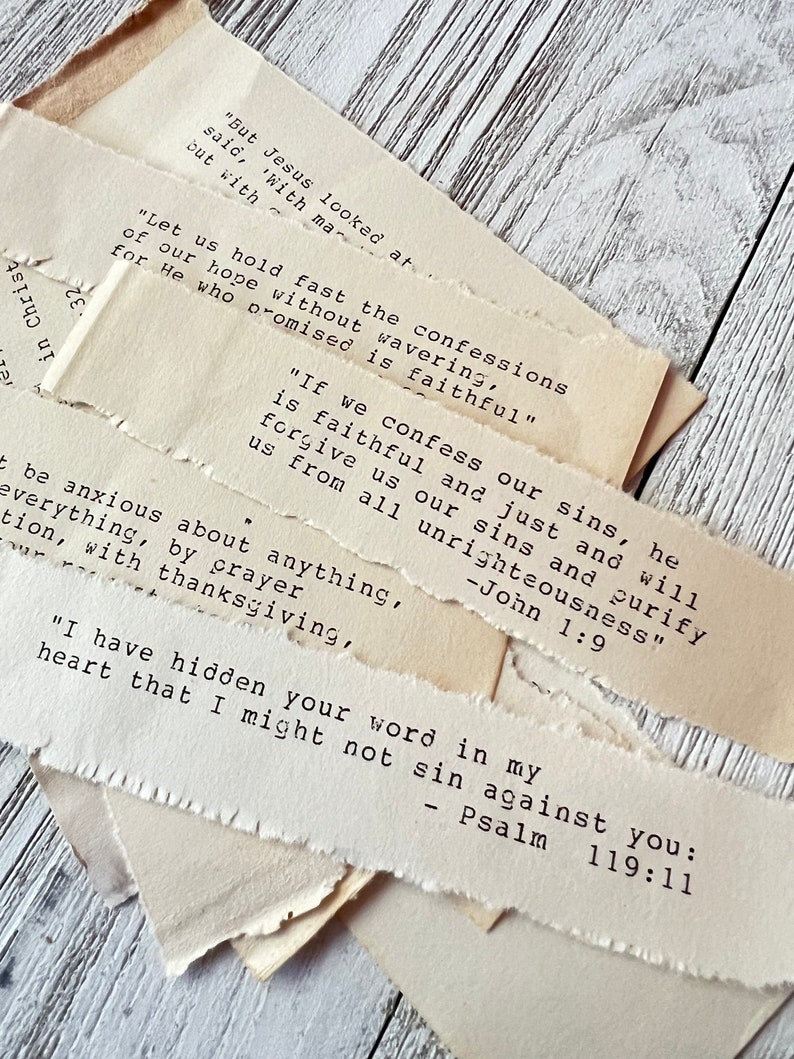 "But Jesus looked at
said, 'With man
but with
"Let us hold fast the confessions
of our hope without wavering,
for He who promised is faithful"
in Christ
32
"If we confess our sins, he
is faithful and just and will
forgive us our sins and purify
us from all unrighteousness"
-John 1:9
be anxious about anything,
everything, by prayer
tion, with thanksgiving,
"I have hidden your word in my
heart that I might not sin against you:
- Psalm 119:11